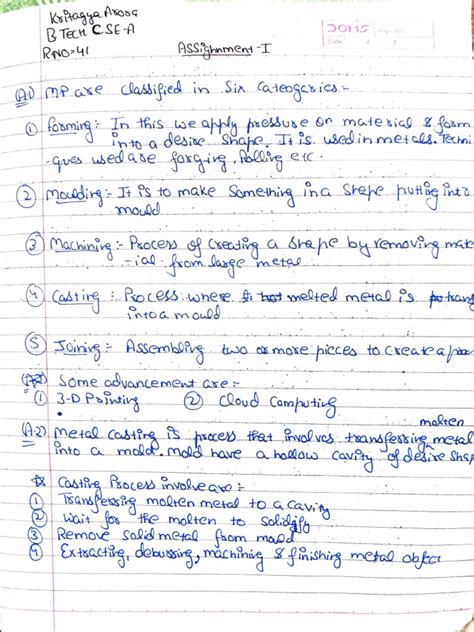 Kritagya Arora
B TECH CSE-A
R.NO:-41
DOMS
Date
ASSIghnment-I
(A.1) MP are classified in Six Cateogaries:-
① Forming:- In this we apply pressure on material & form
into a desire shape. It is used in metals. Techni
ques used are forging, Rolling etc.
② Moulding:- It is to make Something in a shape putting into
mould
③ Machining:- Process of creating a shape by removing mate
-ial from large metal
④ Casting:- Process where melted metal is trans
into a mould
⑤ Joining:- Assembling two or more pieces to create a
(A.2) Some advancement are:-
① 3-D Printing ② Cloud Computing
molten
(A.2) Metal casting is process that involves transferring metal
into a mold. mold have a hollow cavity of desire shap
Casting Process involve are:-
① Transferring molten metal to a cavity
② Wait for the molten to solidify
③ Remove solid metal from mold
④ Extracting, deburring, machining & finishing metal object